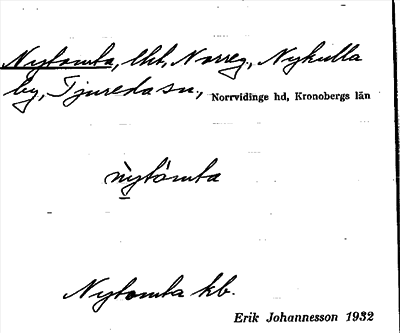 Nytomta, lht, Norreg, Nykulla
by, Tjureda sn, Norrvidinge hd, Kronobergs län
nỳtòmta
Nytomta kb.
Erik Johannesson 1932